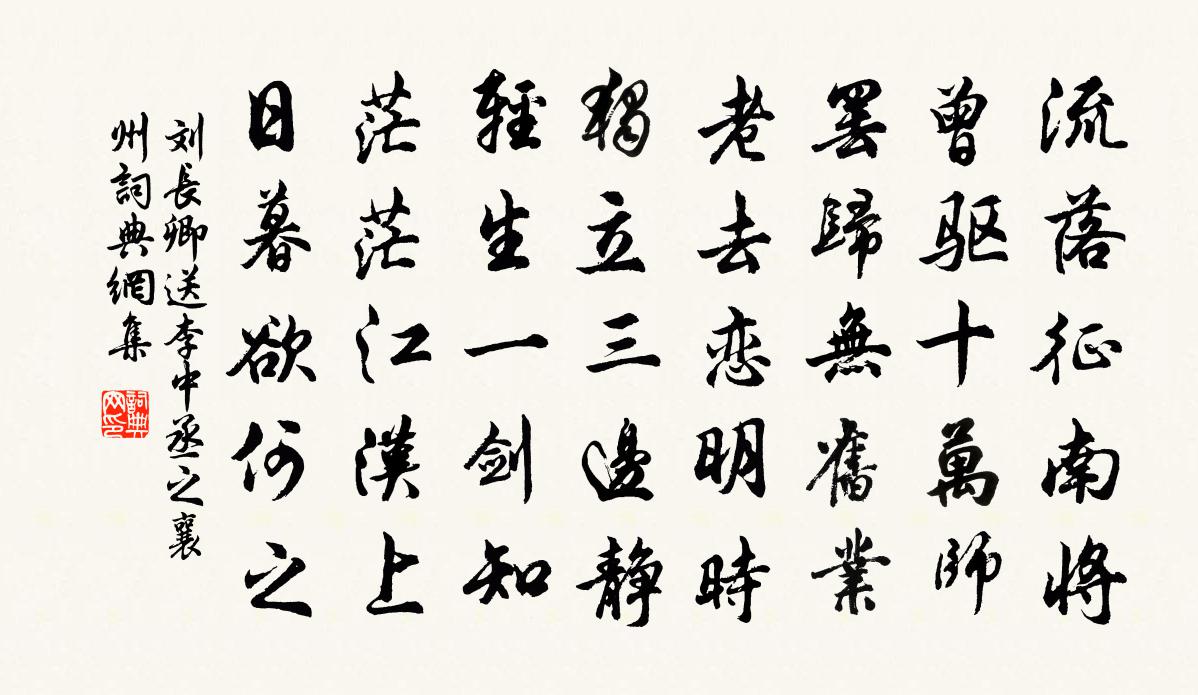 流落征南將
曾驱十萬師
罢歸無舊業
老去恋明時
獨立三邊静
輕生一剑知
茫茫江漢上
日暮欲何之
刘長卿送李中丞之襄
州詞典網集
詞典
网印